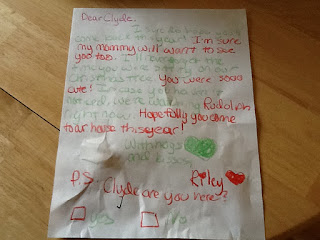 Dear Clyde,
I
come back this year! I'm sure
my mommy will want to see
you too. I'll
time you were on our
christmas tree you were sooo
cute! In case you haven't
noticed, we're watching Rudolph
right now. Hopefully you come
to our house this year!
With hugs
and kisses,
Riley
P.S. Clyde are you here?
yes